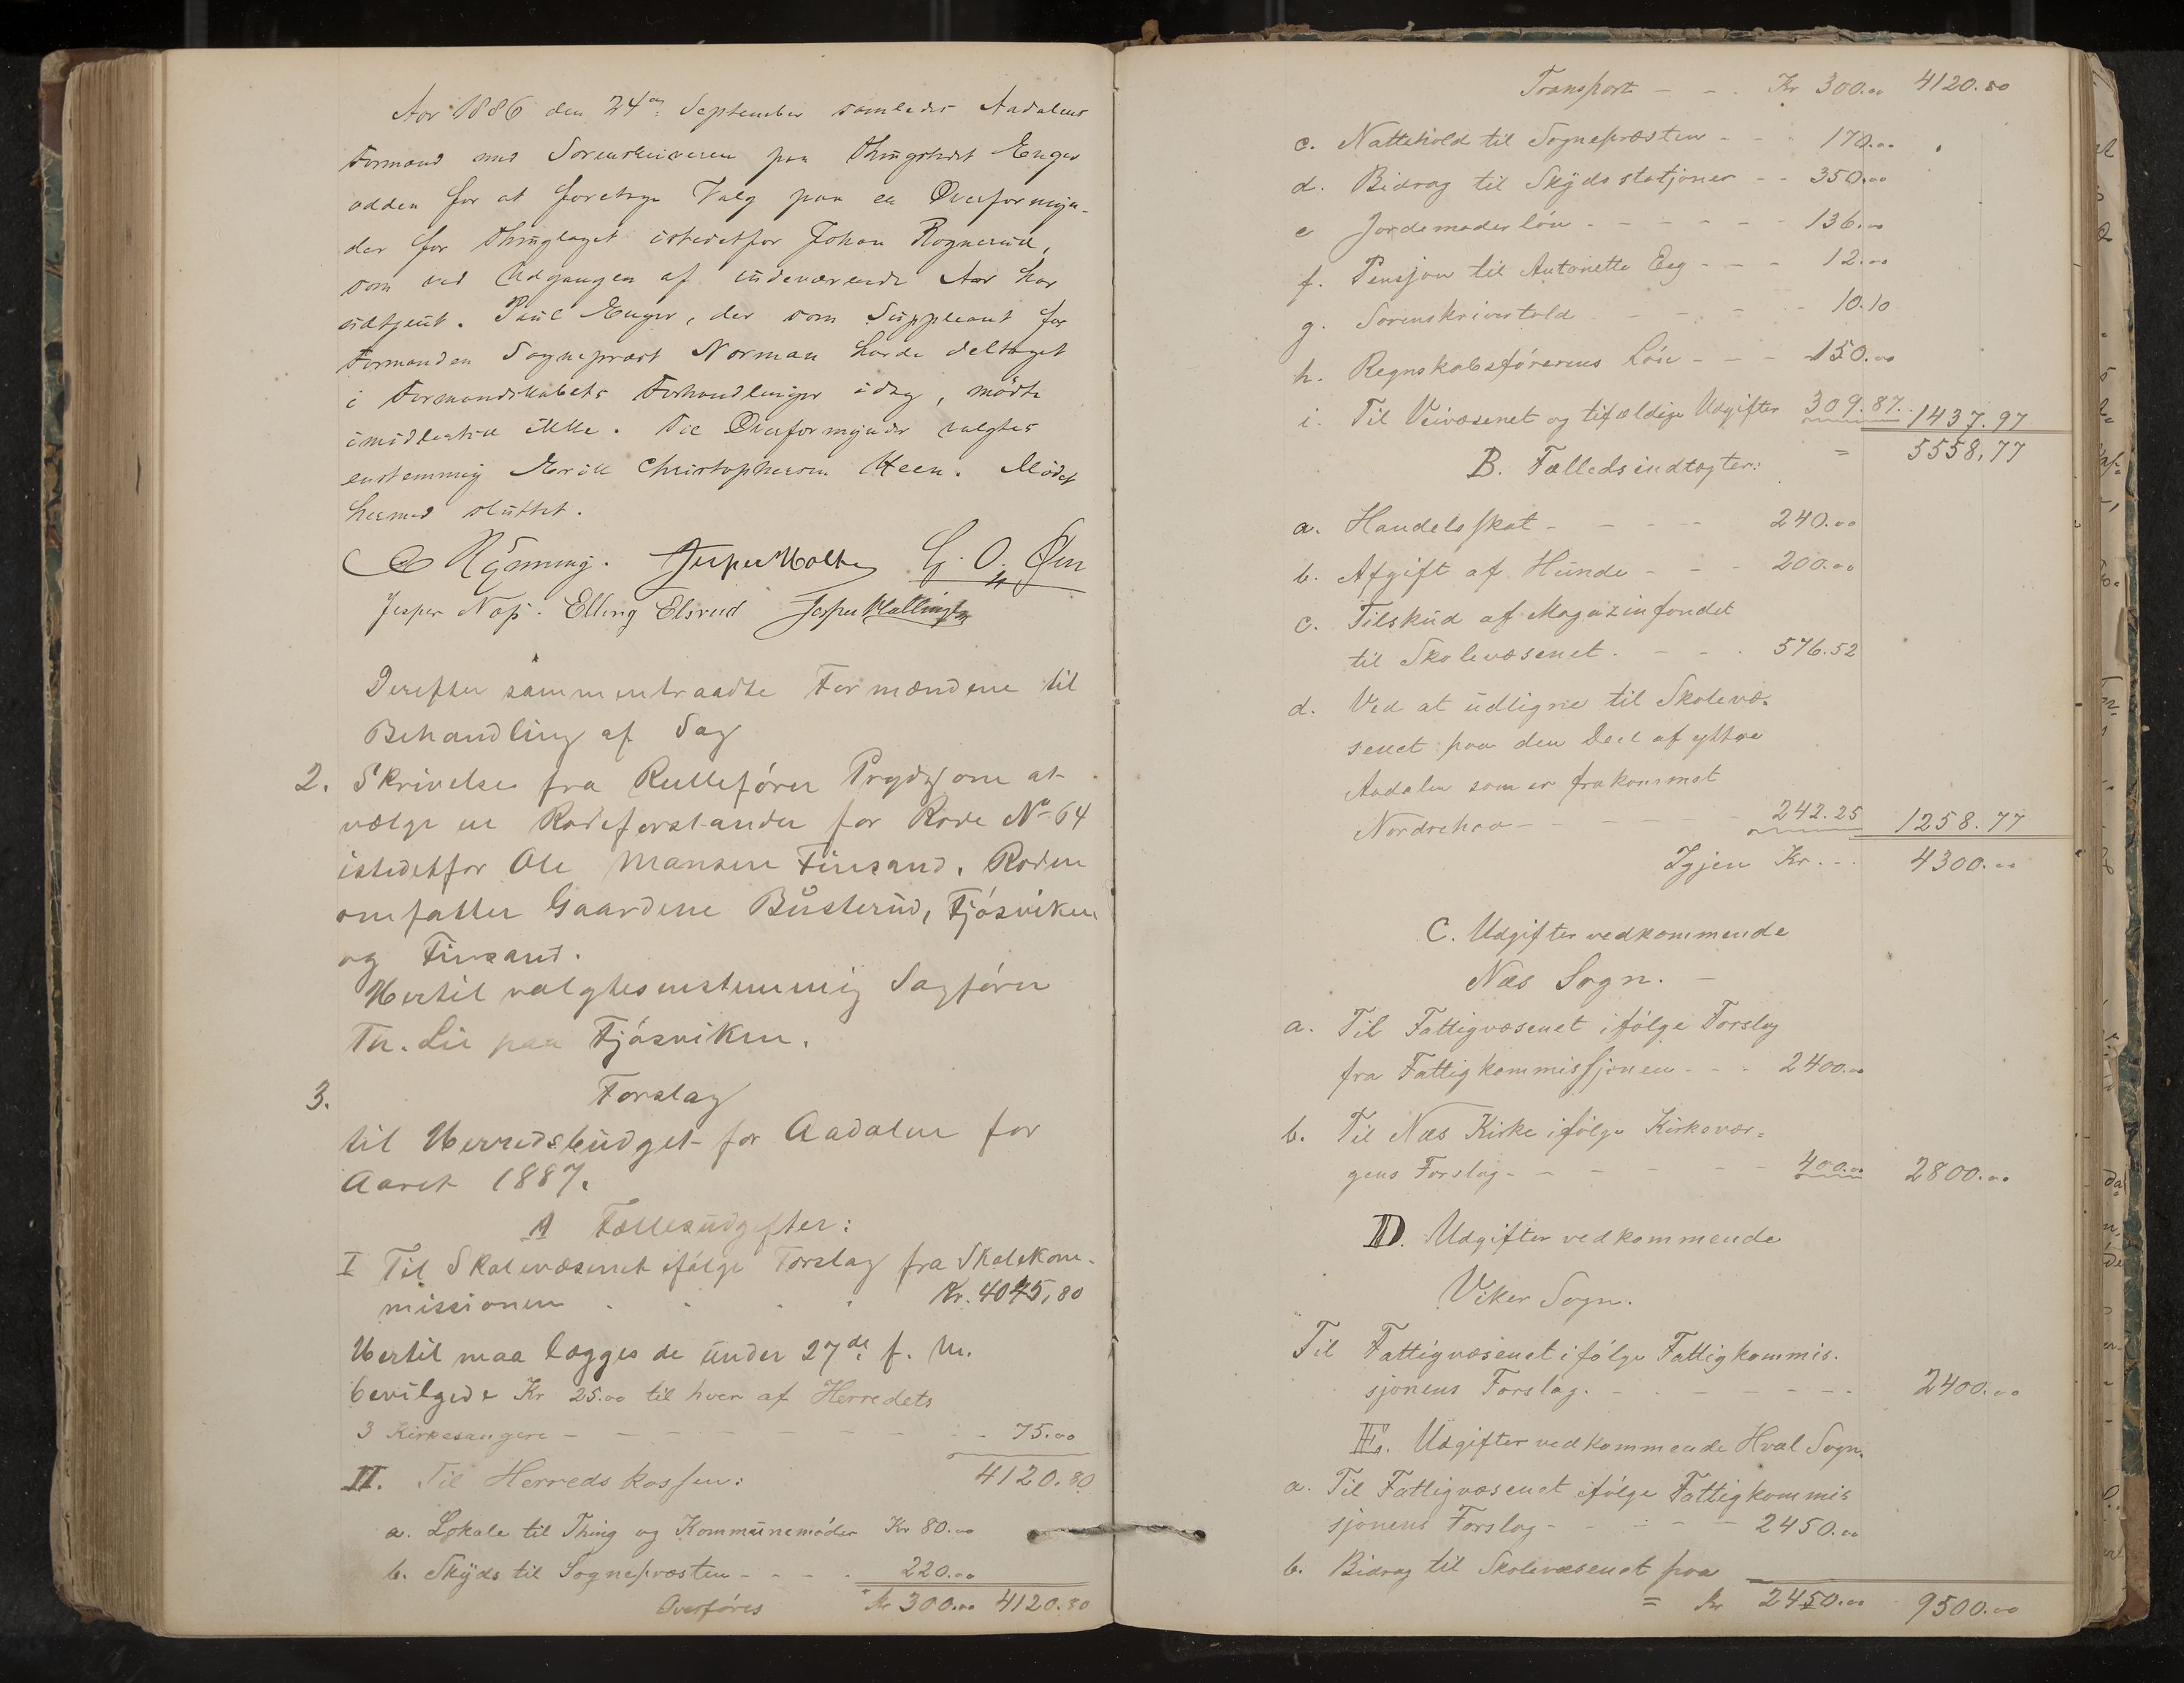 Aar 1886 den 24de September samledes Aadalens
Formænd med Sorenskriveren paa Thingstedet Enger
odden for at foretage Valg paa en Overformyn-
der for Thinglaget istedetfor Johan Rognerud,
som ved Udgangen af indeværende Aar har
udtjent. Paul Enger, der som Suppleant for
Formanden Sognepræst Norman havde deltaget
i Formandskabets Forhandlinger idag, mödte
imidlertid ikke. Til Overformynder valgtes
enstemmig Erik Christophersen Heen. Mödet
hermed sluttet.
Rönning. Jesper Holte G. O. Øen
Jesper Næs. Elling Elsrud Jesper Hallingby
Derefter sammentraadte Formændene til
Behandling af Sag
2. Skrivelse fra Rullefører Prydz om at
vælge en Rodeforstander for Rode No 64
istedetfor Ole Mansen Finsand. Roden
omfatter Gaardene Busterud, Fjösviken
og Finsand.
Hertil valgtes enstemmig Sagförer
Th. Lie paa Fjösviken.
3. Forslag
til Herredsbudget for Aadalen for
Aaret 1887.
A Fællesudgifter:
I Til Skolevæsenet ifölge Forslag fra Skolekom-
missionen . . . . Kr. 4045,80
Hertil maa lægges de under 27de f. M.
bevilgede Kr 25.00 til hver af Herredets
3 Kirkesangere - - - - - - - - - 75.00
II. Til Herredskassen: 4120.80
a. Lokale til Thing og Kommunemöder Kr 80.00
b. Skyds til Sognepræsten - - - - 220.00
Overföres Kr 300.00 4120.80
Transport - - . Kr 300.00 4120.80
c. Nattehold til Sognepræsten - - - 170.00
d. Bidrag til Skydsstatjoner - - 350.00
e Jordemoderlön - - - - - - 136.00
f. Pensjon til Antonette Eeg - - - 12.00
g. Sorenskrivertold - - - - 10.10
h. Regnskabsförerens Lön - - - 150.00
i. Til Veivæsenet og tilfældige Udgifter 309.87. 1437.97
B. Fælledsindtægter: = 5558,77
a. Handelsskat - - - - - 240.00
b. Afgift af Hunde - - - 200.00
c. Tilskud af Magazinfondet
til Skolevæsenet. - - . 576.52
d. Ved at udligne til Skolevæ-
senet paa den Deel af yttre
Aadalen som er frakommet
Nordrehov - - - - - - 242.25 1258.77
Igjen Kr. - . 4300.00
C. Udgifter vedkommende
Næs Sogn. -
a. Til Fattigvæsenet ifölge Forslag
fra Fattigkommissjonen - - - 2400.00
b. Til Næs Kirke ifölge Kirkevær=
gens Forslag - - - - - - 400.00 2800.00
D. Udgifter vedkommende
Viker Sogn.
Til Fattigvæsenet ifölge Fattigkommis-
sjonens Forslag. - - - - - - - 2400.00
E. Udgifter vedkommende Hval Sogn.
a. Til Fattigvæsenet ifölge Fattigkommis
sjonens Forslag - - - - - 2450.00
b. Bidrag til Skolevæsenet paa
= Kr 2450.00 9500.00